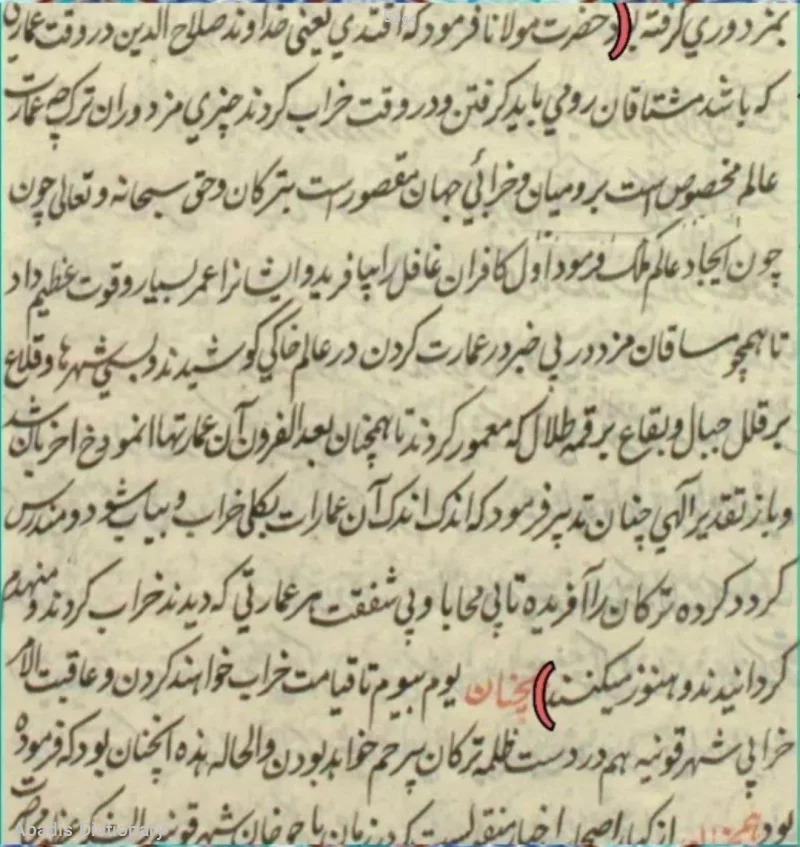 بمزدوري گرفته بود حضرت مولانا فرمود که افندي یعنی خداوند صلاح الدین در وقت عمارتی
که باشد مشتاقان رومي باید گرفتن و در وقت خراب کردن چیزي مزدوران ترک چه عمارت
عالم مخصوص است برومیان و خرابي جهان مقصور است بترکان و حق سبحانه و تعالی چون
چون ایجاد عالم ملک فرمود اول کافران غافل را بیافرید و ایشانرا عمر بسیار و قوت عظیم داد
تا همچو مشاقان مزدور بی خبر در عمارت کردن در عالم خاکي کوشیدند و بسی شهرها و قلاع
بر قلل جبال و بقاع بر قمه طلال که معمور کردند تا همچنان بعد القرون آن عمارتها انموذج اخریان شد
و باز تقدیر الهي چنان تدبیر فرمود که اندک اندک آن عمارات بکلی خراب و بیاب شود و مندرس
گردد کرده ترکان را آفریده تا بی محابا و بی شفقت هر عمارتی که دیدند خراب کردند و منهدم
گردانیدند و هنوز میکنند همچنان یوم بیوم تا قیامت خراب خواهند کردن و عاقبت الامر
خرابی شهر قونیه هم در دست ظلمه ترکان بیرحم خواهد بودن والحاله هذه آنچنان بود که فرموده
بود همچنان از کبار اصحاب اخبار منقولست که در زمان باجوخان شهر قونیه
Abadis Dictionary